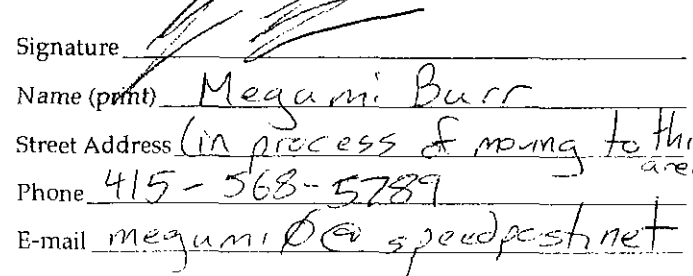 Signature
Name (print) Megumi Burr
Street Address (in process of moving to thi
area
Phone 415-568-5789
E-mail megumi0@speedpost.net